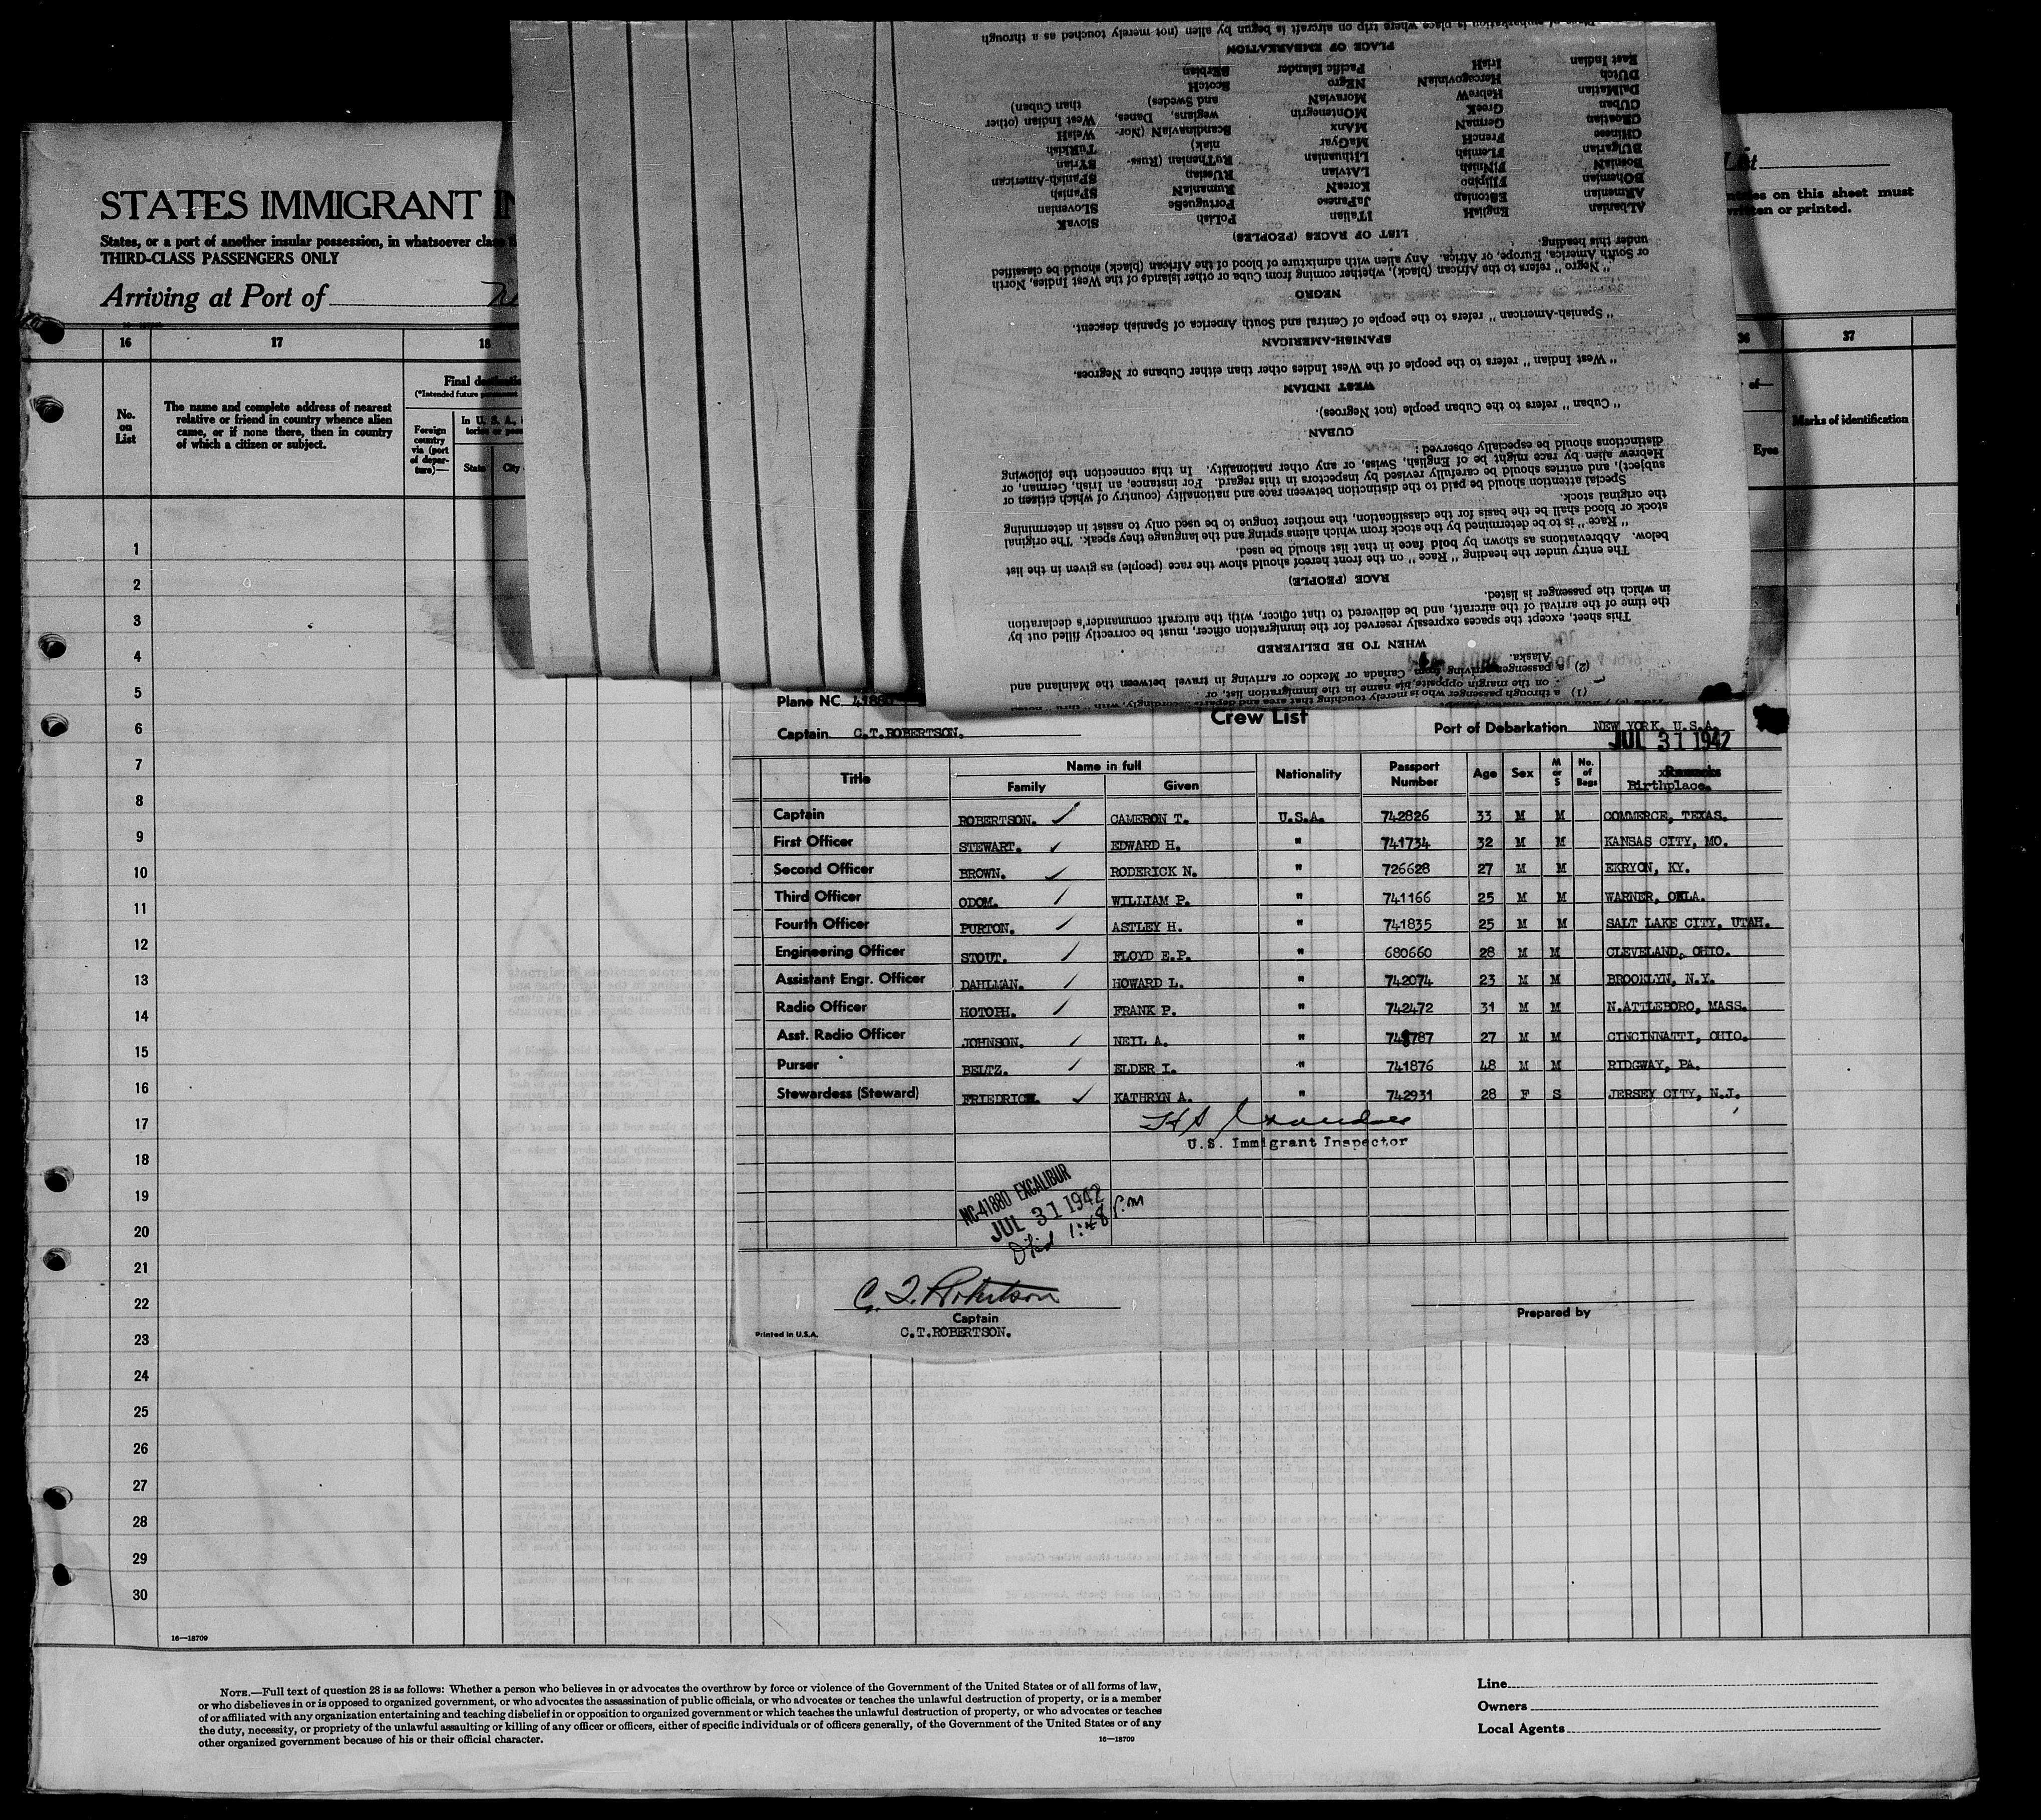 STATES IMMIGRANT IN
States, or a part of another insular possession, in whatsoever class
THIRD-CLASS PASSENGERS ONLY
Arriving at Port of
List
on this sheet must
or printed.
16 17 18 36 37
No. on List
The name and complete address of nearest
relative or friend in country whence alien
came, or if none there, then in country
of which a citizen or subject.
Final
(*Intended future
Foreign
country
via (port
of depar-
ture)—
In U. S. A.,
State City
of—
Eyes
Marks of identification
1
2
3
4
5
6
7
8
9
10
11
12
13
14
15
16
17
18
19
20
21
22
23
24
25
26
27
28
29
30
16—18709
Place of embarkation is place where trip on aircraft is begun by alien (not merely touched as a through
PLACE OF EMBARKATION
East Indian IrisH Pacific Islander SErbian
DUtch HercegoviniaN NEgro ScotcH
DalMatian HebreW MoraviaN and Swedes) than Cuban)
CUban GreeK MOntenegrin wegians, Danes, West Indian (other
CRoatian GermaN MAnx ScandinaviaN (Nor- WelsH
CHinese FrencH MaGyar niak) TuRkish
BUlgarian FLemish LIthuanian RuThenian (Russ- SYrian
BosniaN FINnish LAtvian RUssian SPanish-American
BOhemian FIlipino KoreaN RumaniaN SPanish
ARmenian EStonian JaPanese PortugueSe SLovenian
ALbanian EnglisH ITalian PoLish SlovaK
LIST OF RACES (PEOPLES)
under this heading.
or South America, Europe, or Africa. Any alien with admixture of blood of the African (black) should be classified
" Negro " refers to the African (black), whether coming from Cuba or other islands of the West Indies, North
NEGRO
" Spanish-American " refers to the people of Central and South America of Spanish descent.
SPANISH-AMERICAN
" West Indian " refers to the people of the West Indies other than either Cubans or Negroes.
WEST INDIAN
" Cuban " refers to the Cuban people (not Negroes).
CUBAN
distinctions should be especially observed:
Hebrew alien by race might be of English, Swiss, or any other nationality. In this connection the following
subject), and entries should be carefully revised by inspectors in this regard. For instance, an Irish, German, or
Special attention should be paid to the distinction between race and nationality (country of which citizen or
the original stock.
stock or blood shall be the basis for the classification, the mother tongue to be used only to assist in determining
" Race " is to be determined by the stock from which aliens spring and the language they speak. The original
below. Abbreviations as shown by bold face in that list should be used.
The entry under the heading " Race " on the front hereof should show the race (people) as given in the list
RACE (PEOPLE)
in which the passenger is listed.
the time of the arrival of the aircraft, and be delivered to that officer, with the aircraft commander's declaration
This sheet, except the spaces expressly reserved for the immigration officer, must be correctly filled out by
WHEN TO BE DELIVERED
Alaska.
(2) a passenger arriving from Canada or Mexico or arriving in travel between the Mainland and
on the margin opposite his name in the immigration list, or
(1) a through passenger who is merely touching that area and departs accordingly, with "thru" noted
Plane NC 41880
Crew List
Captain C.T.ROBERTSON.
Port of Debarkation NEW YORK, U.S.A.
JUL 31 1942
Title Name in full Nationality Passport Number Age Sex M or S No. of Bags Remarks
Family Given Birthplace.
Captain ROBERTSON. CAMERON T. U.S.A. 742826 33 M M COMMERCE, TEXAS.
First Officer STEWART. EDWARD H. " 741734 32 M M KANSAS CITY, MO.
Second Officer BROWN. RODERICK N. " 726628 27 M M EKRYON, KY.
Third Officer ODOM. WILLIAM P. " 741166 25 M M WARNER, OKLA.
Fourth Officer PURTON. ASTLEY H. " 741835 25 M M SALT LAKE CITY, UTAH.
Engineering Officer STOUT. FLOYD E.P. " 680660 28 M M CLEVELAND, OHIO.
Assistant Engr. Officer DAHLMAN. HOWARD L. " 742074 23 M M BROOKLYN, N.Y.
Radio Officer HOTOPH. FRANK P. " 742472 31 M M N.ATTLEBORO, MASS.
Asst. Radio Officer JOHNSON. NEIL A. " 27 M M CINCINNATTI, OHIO.
Purser BELTZ. ELDER I. " 741876 48 M M RIDGWAY, PA.
Stewardess (Steward) FRIEDRICH. KATHRYN A. " 742931 28 F S JERSEY CITY, N.J.
U.S. Immigrant Inspector
NC-41880 EXCALIBUR
JUL 31 1942
1:48 P.m
C. T. Robertson
Captain
C.T.ROBERTSON.
Prepared by
Printed in U.S.A.
NOTE.—Full text of question 28 is as follows: Whether a person who believes in or advocates the overthrow by force or violence of the Government of the United States or of all forms of law,
or who disbelieves in or is opposed to organized government, or who advocates the assassination of public officials, or who advocates or teaches the unlawful destruction of property, or is a member
of or affiliated with any organization entertaining and teaching disbelief in or opposition to organized government or which teaches the unlawful destruction of property, or who advocates or teaches
the duty, necessity, or propriety of the unlawful assaulting or killing of any officer or officers, either of specific individuals or of officers generally, of the Government of the United States or of any
other organized government because of his or their official character.
16—18709
Line
Owners
Local Agents